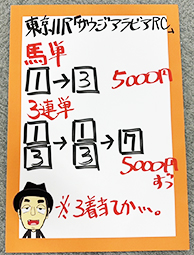 東京11R「サウジアラビアRC」
馬単
1→3 5000円
3連単
1 3→1 3→7
5000円
ずつ
※3着てか…。